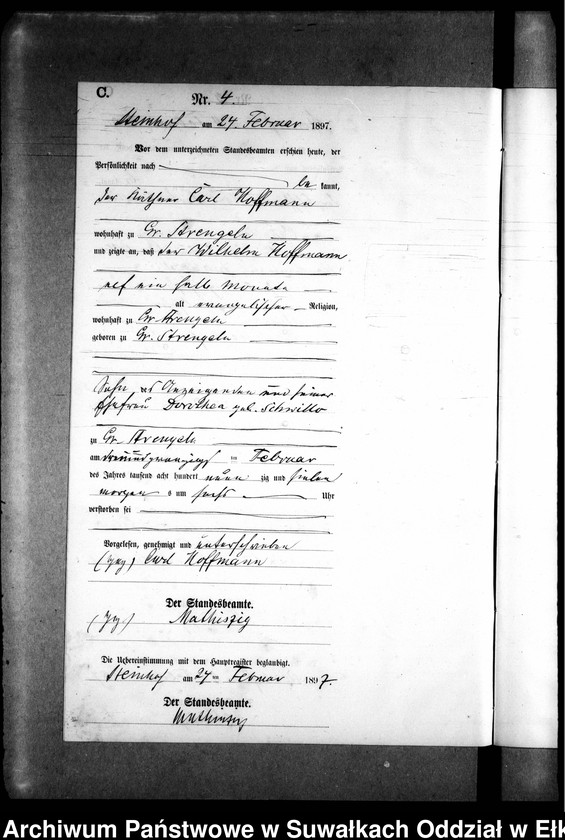 C.
Nr. 4.
Steinhof am 24. Februar 1897.
Vor dem unterzeichneten Standesbeamten erschien heute, der
Persönlichkeit nach
be kannt,
der Käthner Carl Hoffmann
wohnhaft zu Gr. Strengeln
und zeigte an, daß der Wilhelm Hoffmann
elf ein halb Monate
alt evangelischer Religion,
wohnhaft zu Gr. Strengeln
geboren zu Gr. Strengeln
Sohn des Anzeigenden und seiner
Ehefrau Dorothea geb.
zu Gr. Strengeln
am dreiundzwanzigsten Februar
des Jahres tausend acht hundert neun zig und sieben
morgens um sechs Uhr
verstorben sei
Vorgelesen, genehmigt und unterschrieben
(gez) Carl Hoffmann
Der Standesbeamte.
(gz) Mathiszig
Die Uebereinstimmung mit dem Hauptregister beglaubigt.
Steinhof am 24 ten Februar 1897.
Der Standesbeamte.
Mathiszig
Archiwum Państwowe w Suwałkach Oddział w Ełk